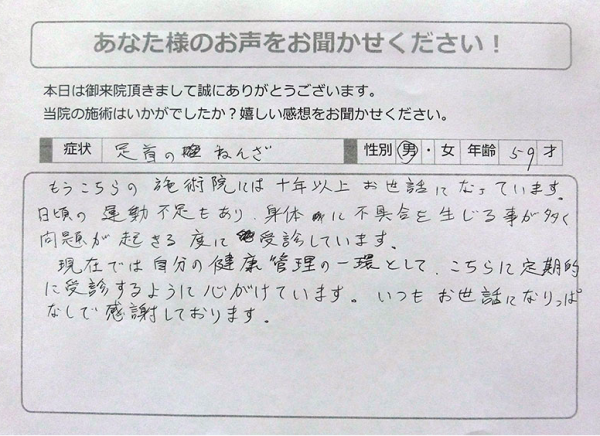 あなた様のお声をお聞かせください！
本日は御来院頂きまして誠にありがとうございます。
当院の施術はいかがでしたか？嬉しい感想をお聞かせください。
症状 足首の ねんざ 性別 男・女 年齢 59 才
もうこちらの 施術院には 十年以上 お世話に なっています。
日頃の 運動 不足もあり、身体 に 不具合を 生じる 事が 多く
問題が 起きる 度に 受診しています。
現在では 自分の 健康 管理の 一環として、こちらに 定期的
に 受診するように 心がけています。いつも お世話に なりっぱ
なしで 感謝しております。